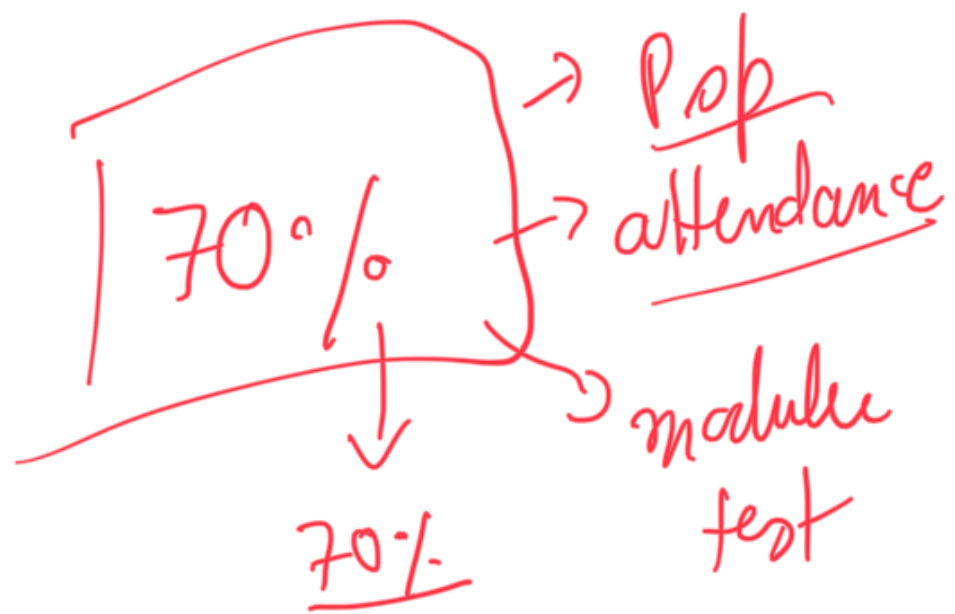 Pop
70%
attendance
module
test
70%